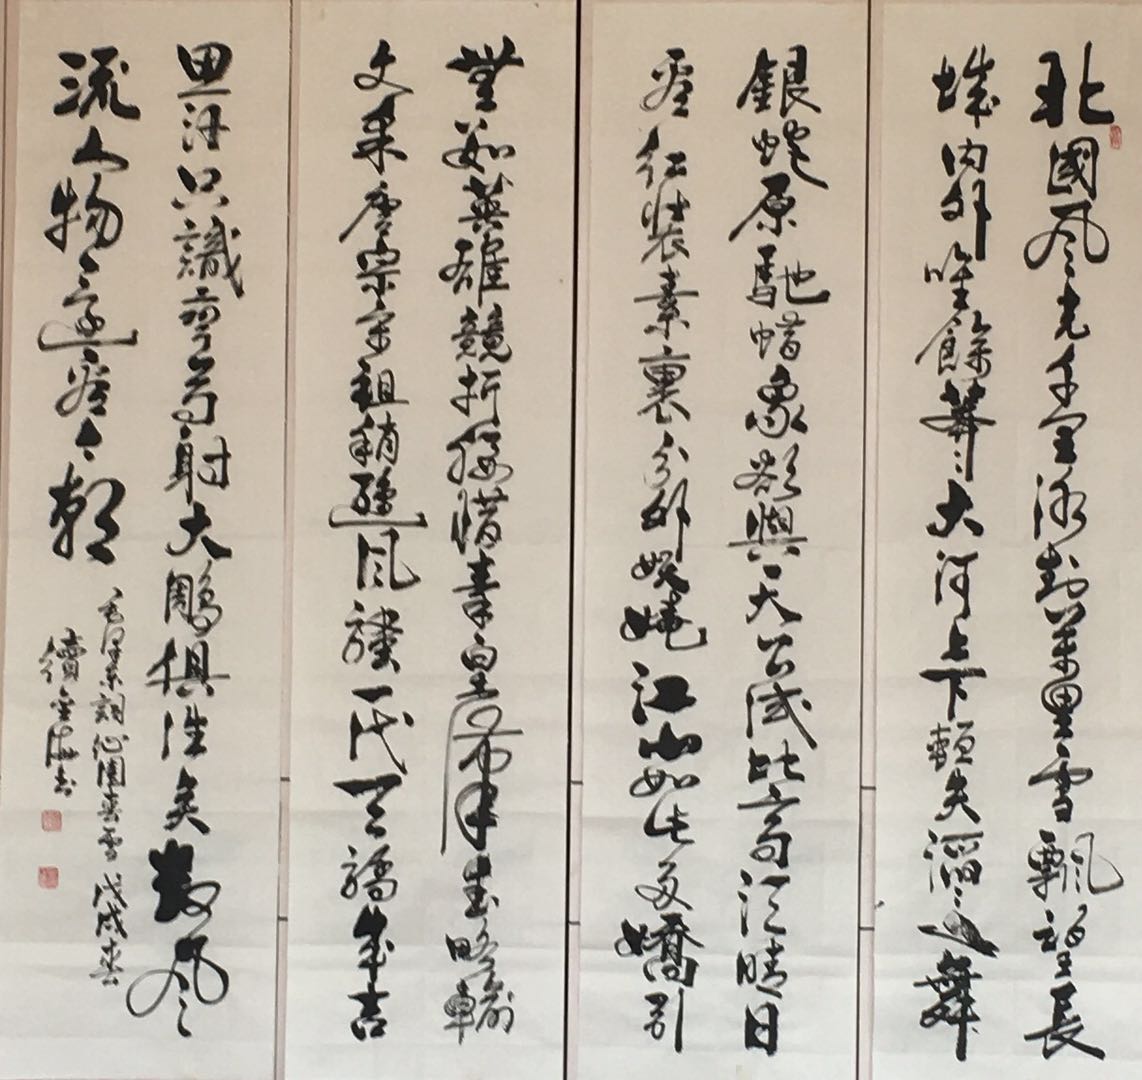 北國風光千里冰封萬里雪飄望長
城内外唯餘莽々大河上下頓失滔々山舞
銀蛇原馳蜡象欲與天公試比高须晴日
看红装素裹分外妖娆江山如此多嬌引
無數英雄競折腰惜秦皇漢武略輸
文采唐宗宋祖稍遜風騷一代天驕成吉
思汗只識彎弓射大雕俱往矣數風
流人物還看今朝
毛澤東詞沁園春雪戊戌春
續金海书